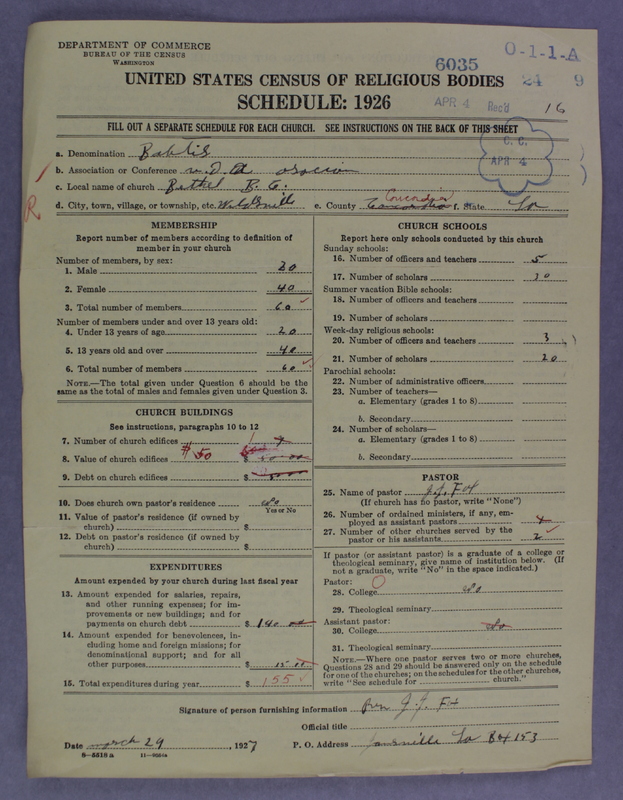 DEPARTMENT OF COMMERCE
BUREAU OF THE CENSUS
WASHINGTON
O-1-1-A
6035
24 9
UNITED STATES CENSUS OF RELIGIOUS BODIES
SCHEDULE: 1926
APR 4 Rec'd 16
FILL OUT A SEPARATE SCHEDULE FOR EACH CHURCH. SEE INSTRUCTIONS ON THE BACK OF THIS SHEET
C. C.
APR 4
a. Denomination
b. Association or Conference
c. Local name of church Bethel B. C.
R
d. City, town, village, or township, etc. e. County f. State La
MEMBERSHIP
Report number of members according to definition of
member in your church
Number of members, by sex:
1. Male 20
2. Female 40
3. Total number of members 60
Number of members under and over 13 years old:
4. Under 13 years of age 20
5. 13 years old and over 40
6. Total number of members 60
NOTE.—The total given under Question 6 should be the
same as the total of males and females given under Question 3.
CHURCH BUILDINGS
See instructions, paragraphs 10 to 12
7. Number of church edifices 1
8. Value of church edifices $50 $
9. Debt on church edifices $
10. Does church own pastor's residence
Yes or No
11. Value of pastor's residence (if owned by
church) $
12. Debt on pastor's residence (if owned by
church) $
EXPENDITURES
Amount expended by your church during last fiscal year
13. Amount expended for salaries, repairs,
and other running expenses; for im-
provements or new buildings; and for
payments on church debt $ 140 00
14. Amount expended for benevolences, in-
cluding home and foreign missions; for
denominational support; and for all
other purposes $ 15 00
15. Total expenditures during year $ 155
CHURCH SCHOOLS
Report here only schools conducted by this church
Sunday schools:
16. Number of officers and teachers 5
17. Number of scholars 30
Summer vacation Bible schools:
18. Number of officers and teachers
19. Number of scholars
Week-day religious schools:
20. Number of officers and teachers 3
21. Number of scholars 20
Parochial schools:
22. Number of administrative officers
23. Number of teachers—
a. Elementary (grades 1 to 8)
b. Secondary
24. Number of scholars—
a. Elementary (grades 1 to 8)
b. Secondary
PASTOR
25. Name of pastor J. J. Fox
(If church has no pastor, write "None")
26. Number of ordained ministers, if any, em-
ployed as assistant pastors
27. Number of other churches served by the
pastor or his assistants 2
If pastor (or assistant pastor) is a graduate of a college or
theological seminary, give name of institution below. (If
not a graduate, write "No" in the space indicated.)
Pastor:
28. College
29. Theological seminary
Assistant pastor:
30. College
31. Theological seminary
NOTE.—Where one pastor serves two or more churches,
Questions 28 and 29 should be answered only on the schedule
for one of the churches; on the schedules for the other churches,
write "See schedule for church."
Signature of person furnishing information J. J. Fox
Official title
Date March 29, 1927 P. O. Address La Box 153
8—5518 a 11—9554a